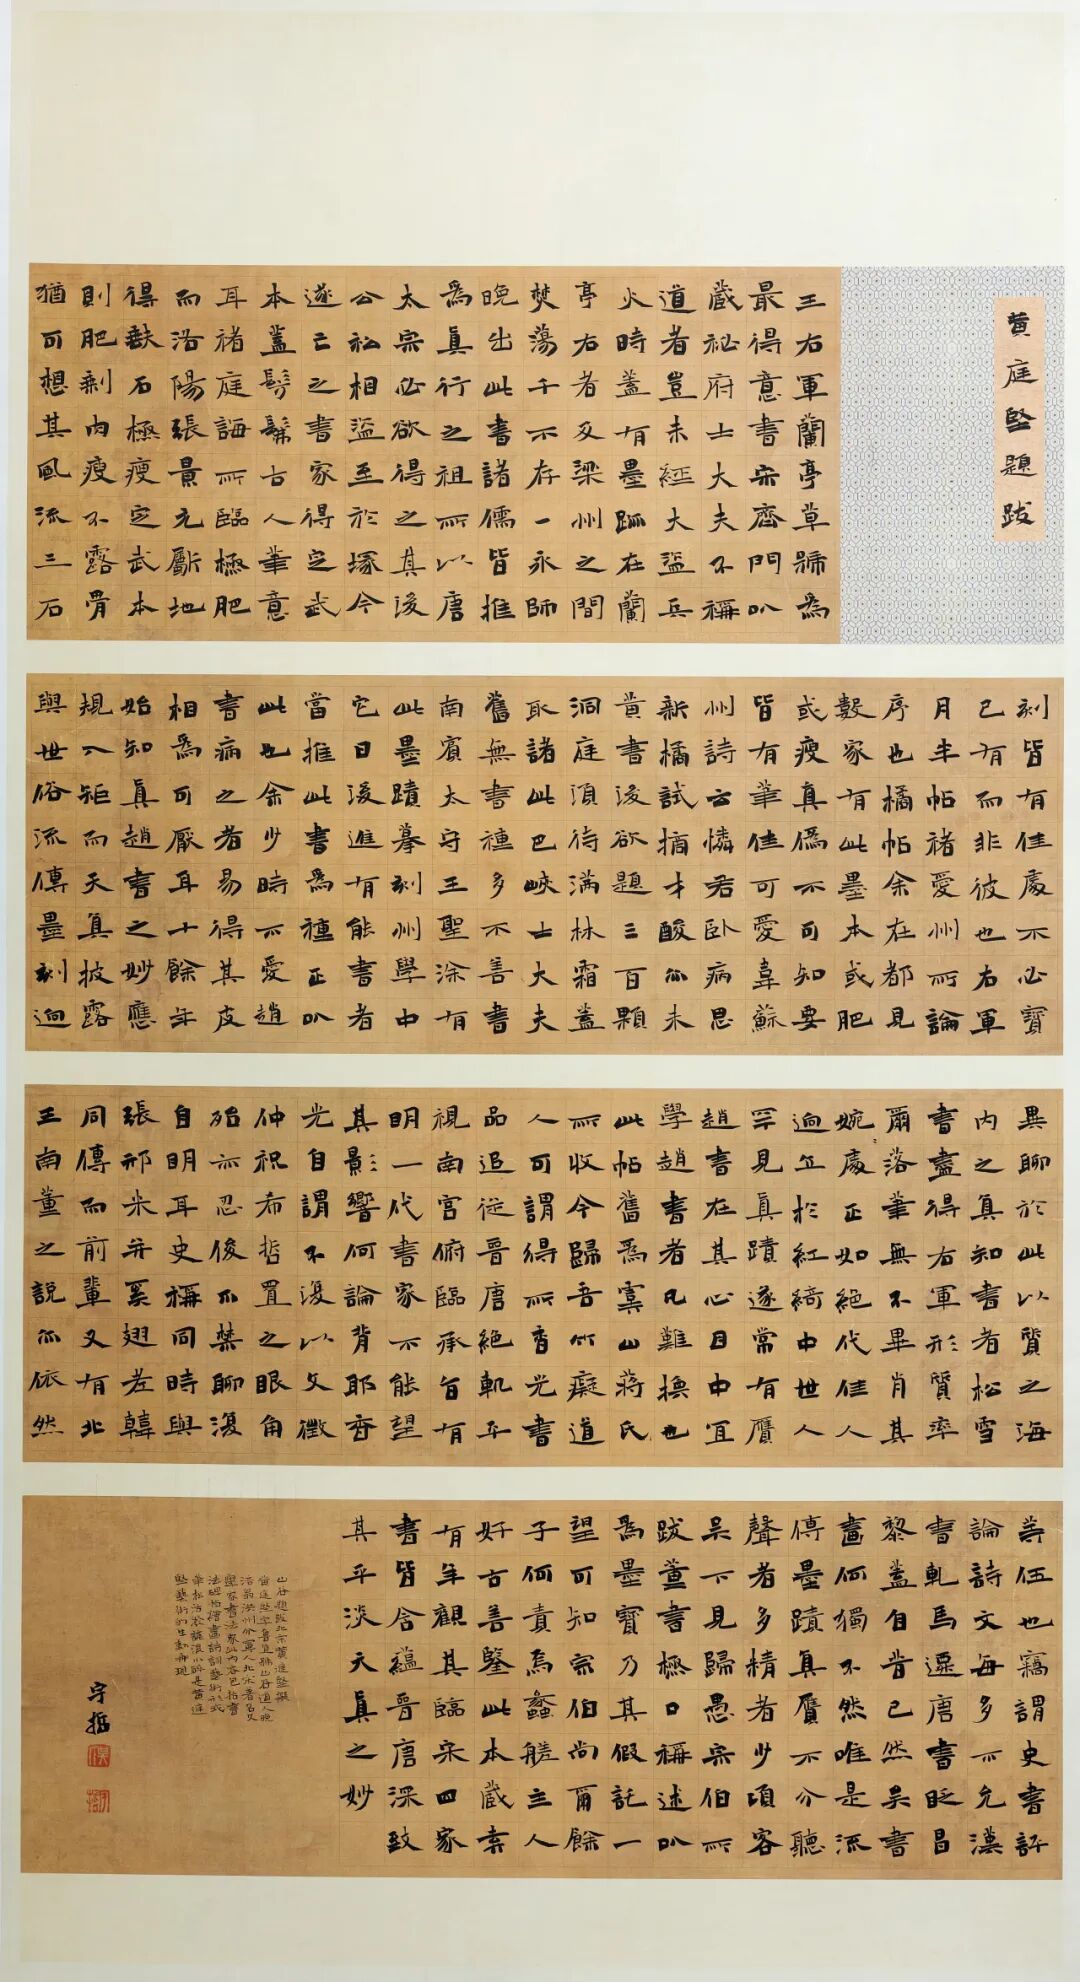 黄庭堅題跋
王右軍蘭亭草號為
最得意書宋齊門以
蔵祕府士大夫不稱
道者豈未經大盜兵
火時蓋有墨跡在蘭
亭右者及梁州之間
焚蕩千不存一永師
晚出此書諸儒皆推
為真行之祖所以唐
太宗必欲得之其後
公私相盜至於塚今
遂亡之書家得定武
本蓋髣髴古人筆意
耳褚庭誨所臨極肥
而洛陽張景元斸地
得缺石極瘦定武本
則肥剩內瘦不露骨
猶可想其風流三石
刻皆有佳處不必寶
已有而非彼也右軍
月半帖褚愛州所論
序也橘帖余在都見
數家有此墨本或肥
或瘦真偽不可知要
皆有筆佳可愛韋蘇
州詩云憐君臥病思
新橘試摘才酸亦未
黄書後欲題三百顆
洞庭須待滿林霜蓋
取諸此巴峽士大夫
舊無書種多不善書
南賓太守王聖涂有
此墨蹟摹刻州學中
它日後進有能書者
當推此書為種正以
此也余少時亦愛趙
書病之者易得其皮
相為可厭耳十餘年
始知真趙書之妙應
規入矩而天真披露
與世俗流傳墨刻迥
異聊於此以質之海
內之真知書者松雪
書盡得右軍形質率
爾落筆無不畢肖其
婉處正如絕代佳人
迥立於紅綺中世人
罕見真蹟遂常有贋
趙書在其心目中宜
學趙書者凡難換也
此帖舊為虞山蔣氏
所收今歸吾竹癡道
人可謂得所香光書
品追從晉唐絕軌平
視南宮俯臨承旨有
明一代書家不能望
其影響何論背耶香
光自謂不復以文徵
仲祝希哲置之眼角
殆亦忍俊不禁聊復
自明耳史稱同時與
張邢米并奚翅老韓
同傳而前輩又有北
王南董之說亦依然
等伍也竊謂史書評
論詩文每多不允漢
書軋馬還唐書貶昌
黎蓋自昔已然吳書
畫何獨不然唯是流
傳墨蹟真贋不分聽
聲者多精者少項容
吳下見歸愚宗伯所
跋董書極口稱述以
為墨寶乃其假託一
望可知宗伯尚爾餘
子何責焉蠡艖主人
好古善鑒此本蔵素
有年觀其臨宋四家
書皆含蘊晉唐深致
其平淡天真之妙
山谷題跋北宋黄庭堅撰
黄庭堅字魯直號山谷道人晚
涪翁洪州分寧人北宋著名文
學家書法家此內容包括書
法碑帖繪畫詩詞藝術形式
是黄庭
堅藝術的生動再現
守